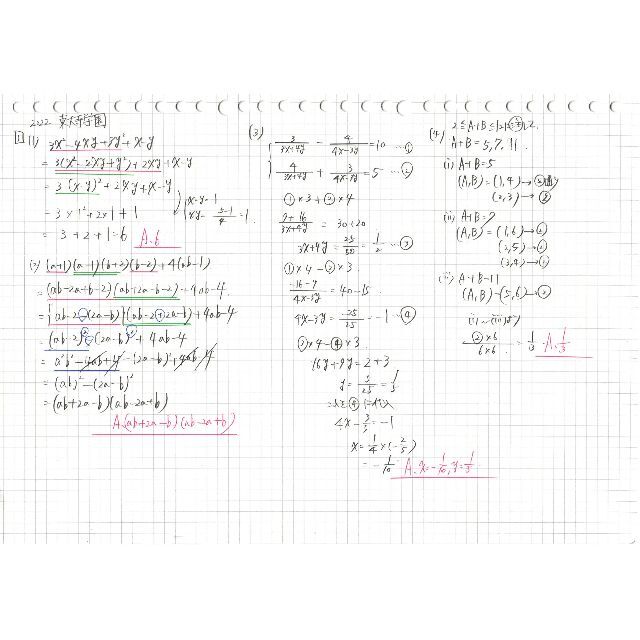 2022 東大寺学園
1 (1) 3x²-4xy+3y²+x-y
= 3(x²-2xy+y²)+2xy+x-y
= 3(x-y)²+2xy+x-y
x-y=1
xy= (5-1)/4 =1
= 3×1²+2×1+1
= 3+2+1=6 A.6
(2) (a+1)(a-1)(b+2)(b-2)+4(ab-1)
= (ab-2a+b-2)(ab+2a-b-2)+4ab-4
= {ab-2-(2a-b)}{ab-2+(2a-b)}+4ab-4
= (ab-2)²-(2a-b)²+4ab-4
= a²b²-4ab+4-(2a-b)²+4ab-4
= (ab)²-(2a-b)²
= (ab+2a-b)(ab-2a+b)
A.(ab+2a-b)(ab-2a+b)
(3)
3/(3x+4y) - 4/(4x-3y) =10 …①
4/(3x+4y) + 3/(4x-3y) =5 …②
①×3+②×4
(9+16)/(3x+4y) = 30+20
3x+4y= 25/50 = 1/2 …③
①×4-②×3.
(-16-9)/(4x-3y) = 40-15.
4x-3y= -25/25 =-1 …④
③×4-④×3.
16y+9y=2+3
y= 5/25 = 1/5
これを④に代入
4x- 3/5 =-1
x= 1/4 ×(- 2/5)
= - 1/10 A. x=- 1/10, y= 1/5
(4) 2≦A+B≦12
A+B=5,7,11.
(i) A+B=5
(A,B)=(1,4)→②通り
(2,3)→②
(ii) A+B=7
(A,B)=(1,6)→②
(2,5)→②
(3,4)→②
(iii) A+B=11
(A,B)=(5,6)→②
(i)~(iii)より
(②×6)/(6×6) = 1/3 A. 1/3